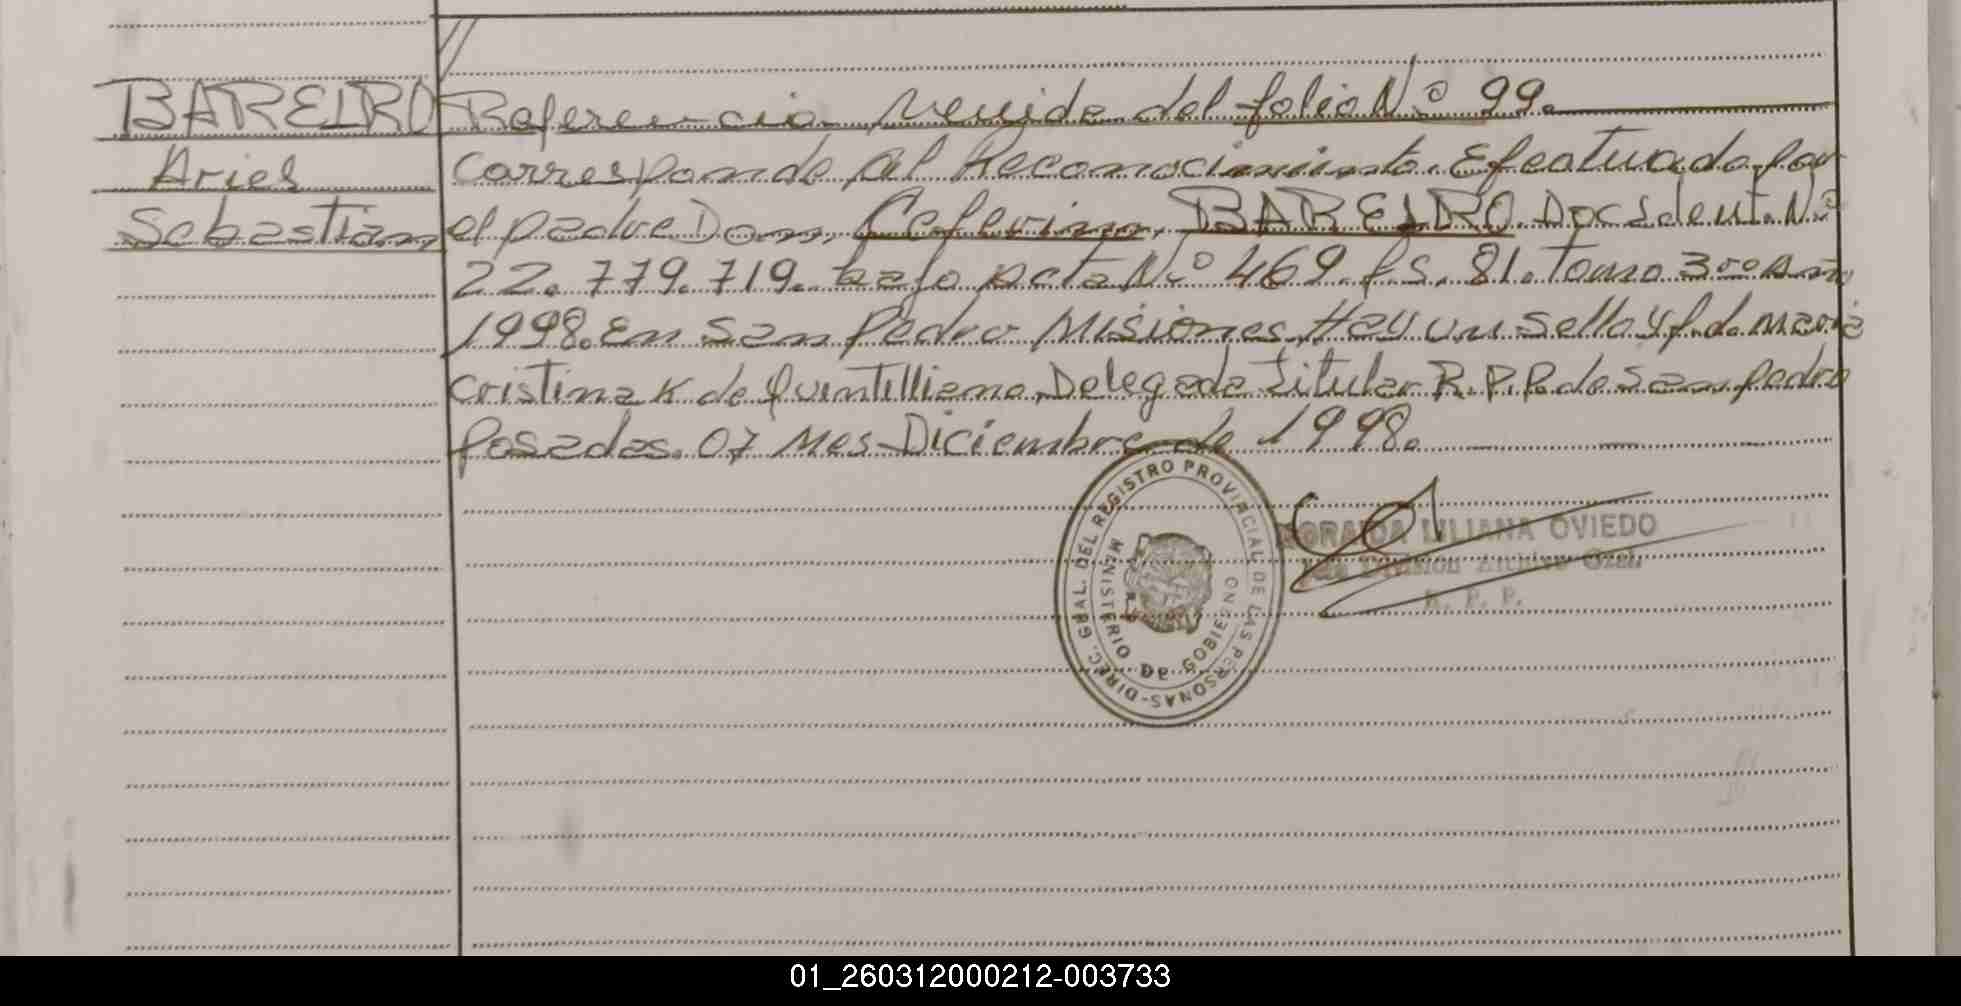 BAREIRO
Ariel
Sebastian
//
Referencia Venida del folio N.º 99.
Corresponde al Reconocimiento. Efectuado por
el padre Don, Ceferino, BAREIRO. Doc Ident. N.º
22.779.719. bajo acta N.º 469. fs. 81. Tomo 3ºº Año
1998. En San Pedro Misiones. Hay un sello y fdo. Maria
Cristina K de Quintilliano, Delegada Titular R.P.P. de San pedro
Posadas. 07 Mes Diciembre de 1998.
DIREC. GRAL. DEL REGISTRO PROVINCIAL DE LAS PERSONAS-
MINISTERIO DE GOBIERNO
LILIANA OVIEDO
División Archivo Gral.
R. P. P.
01_260312000212-003733